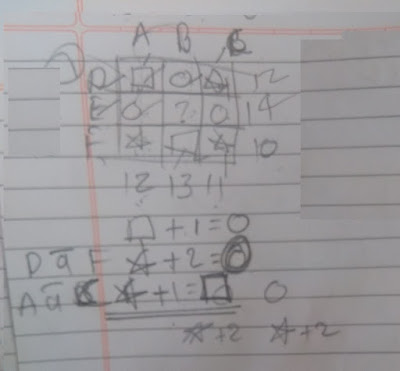 A B C
D □ ○ ☆ 12
E ○ ? ○ 14
F ☆ □ ☆ 10
12 13 11
□ + 1 = ○
D ā F ☆ + 2 = ○
A ā C ☆ + 1 = □ ○
☆ + 2 ☆ + 2